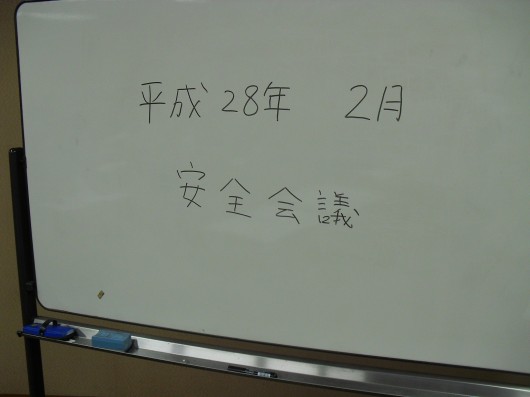 平成28年 2月
安全会議